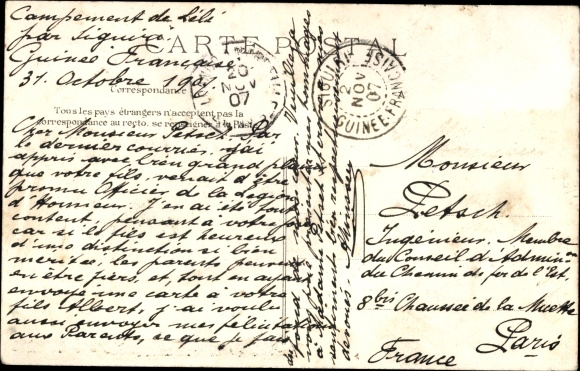 Campement de Lélé
par Siguiri
Guinée Française
31 Octobre 1907
CARTE POSTALE
Correspondance
Tous les pays étrangers n'acceptent pas la
correspondance au recto, se renseigner à la Poste
SIGUIRI
2
NOV
07
GUINÉE FRANCAISE
NOV
07
Cher Monsieur Petsch. Par
le dernier courrier, j'ai
appris avec bien grand plaisir
que votre fils, venait d'être
promu Officier de la Légion
d'Honneur. J'en ai été tout
content, pensant à votre
car si le fils est heureux
d'une distinction si bien
méritée, les parents peuvent
en être fiers, et, tout en ayant
envoyé une carte à votre
fils Albert, j'ai voulu
aussi envoyer mes félicitations
aux Parents, ce que je fais
du fond du
à Madame
sentiments
Monsieur
Petsch.
Ingénieur. Membre
du Conseil d'Admin on
du Chemin de fer de l'Est.
8 bis Chaussée de la Muette
Paris
France